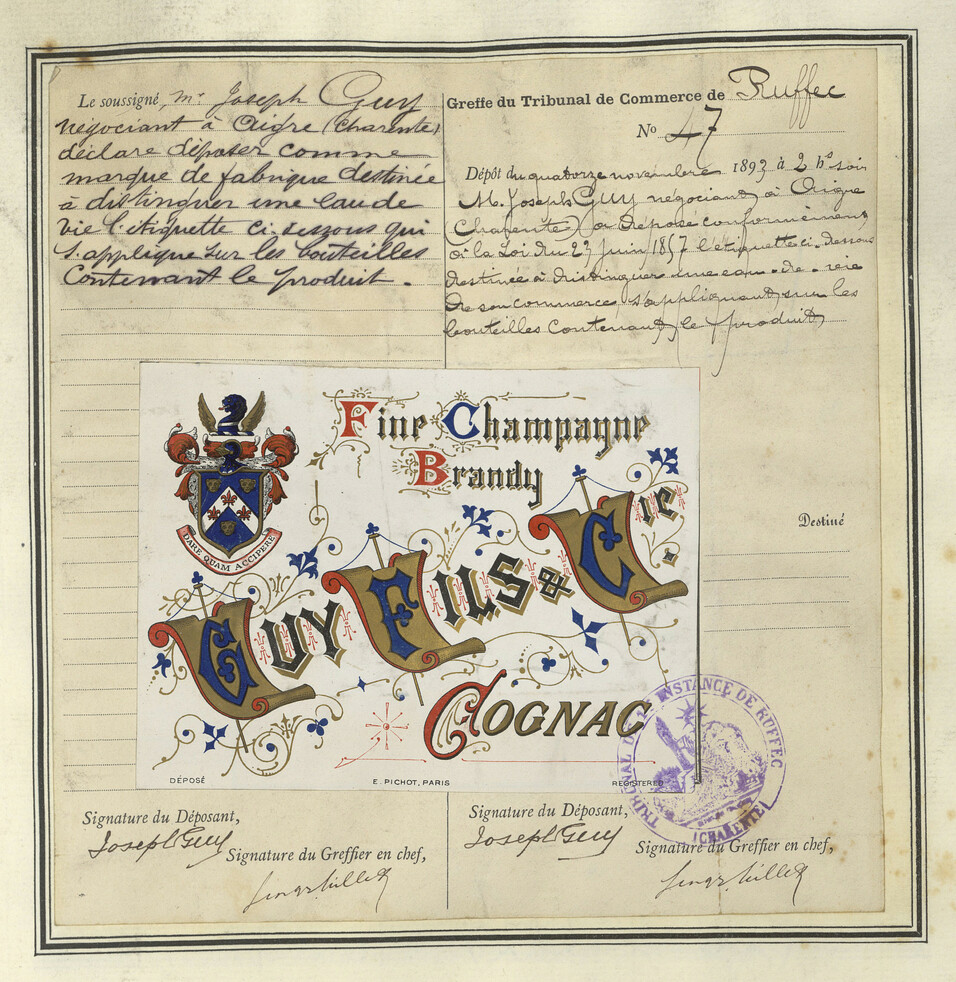 Le soussigné, Mr Joseph Guy
négociant à Aigre (Charente)
déclare déposer comme
marque de fabrique destinée
à distinguer une eau de
vie l'étiquette ci-dessous qui
s'applique sur les bouteilles
contenant le produit.
Greffe du Tribunal de Commerce de Ruffec
No 47
Dépôt du quatorze novembre 1893 à 2 hes soir
M. Joseph Guy négociant à Aigre
Charente a déposé conformément
à la Loi du 23 Juin 1857 l'étiquette ci-dessous
destinée à distinguer une eau-de-vie
de son commerce s'appliquant sur les
bouteilles contenant le produit
Fine Champagne
Brandy
DARE QUAM ACCIPERE
Guy Fils & Cie.
COGNAC
DÉPOSÉ
E. PICHOT, PARIS
REGISTERED
Destiné
TRIBUNAL DE INSTANCE DE RUFFEC
(CHARENTE)
Signature du Déposant,
Joseph Guy
Signature du Greffier en chef,
Signature du Déposant,
Joseph Guy
Signature du Greffier en chef,